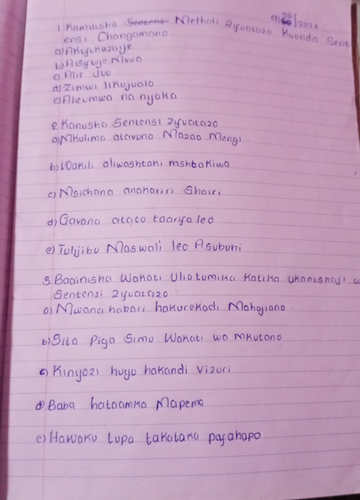 1. Kamilisha Methali zifuatazo Kuunda Sent
ensi Changamano
a) Akufukuzaye
b) Asiyuye Mvua
c) Alie Juu
d) Zimwi likujualo
e) Alieumwa na nyoka
2. Kanusha Sentensi zifuatazo
a) Mkulima atavuna Mazao Mengi
b) Wakili aliwashtaki mshtakiwa
c) Msichana anakariri Shairi
d) Gavana atato taarifa leo
e) Tulijibu Maswali leo Asubuhi
3. Baainisha Wakati Uliotumika Katika Ukanushaji w
Sentensi zifuatazo
a) Mwana habari hakurekodi Mahojiano
b) Sita Piga Simu Wakati wa Mkutano
c) Kinyozi huyo hakandi vizuri
d) Baba hataamka Mapema
e) Hawaku tupa takataka papahapo